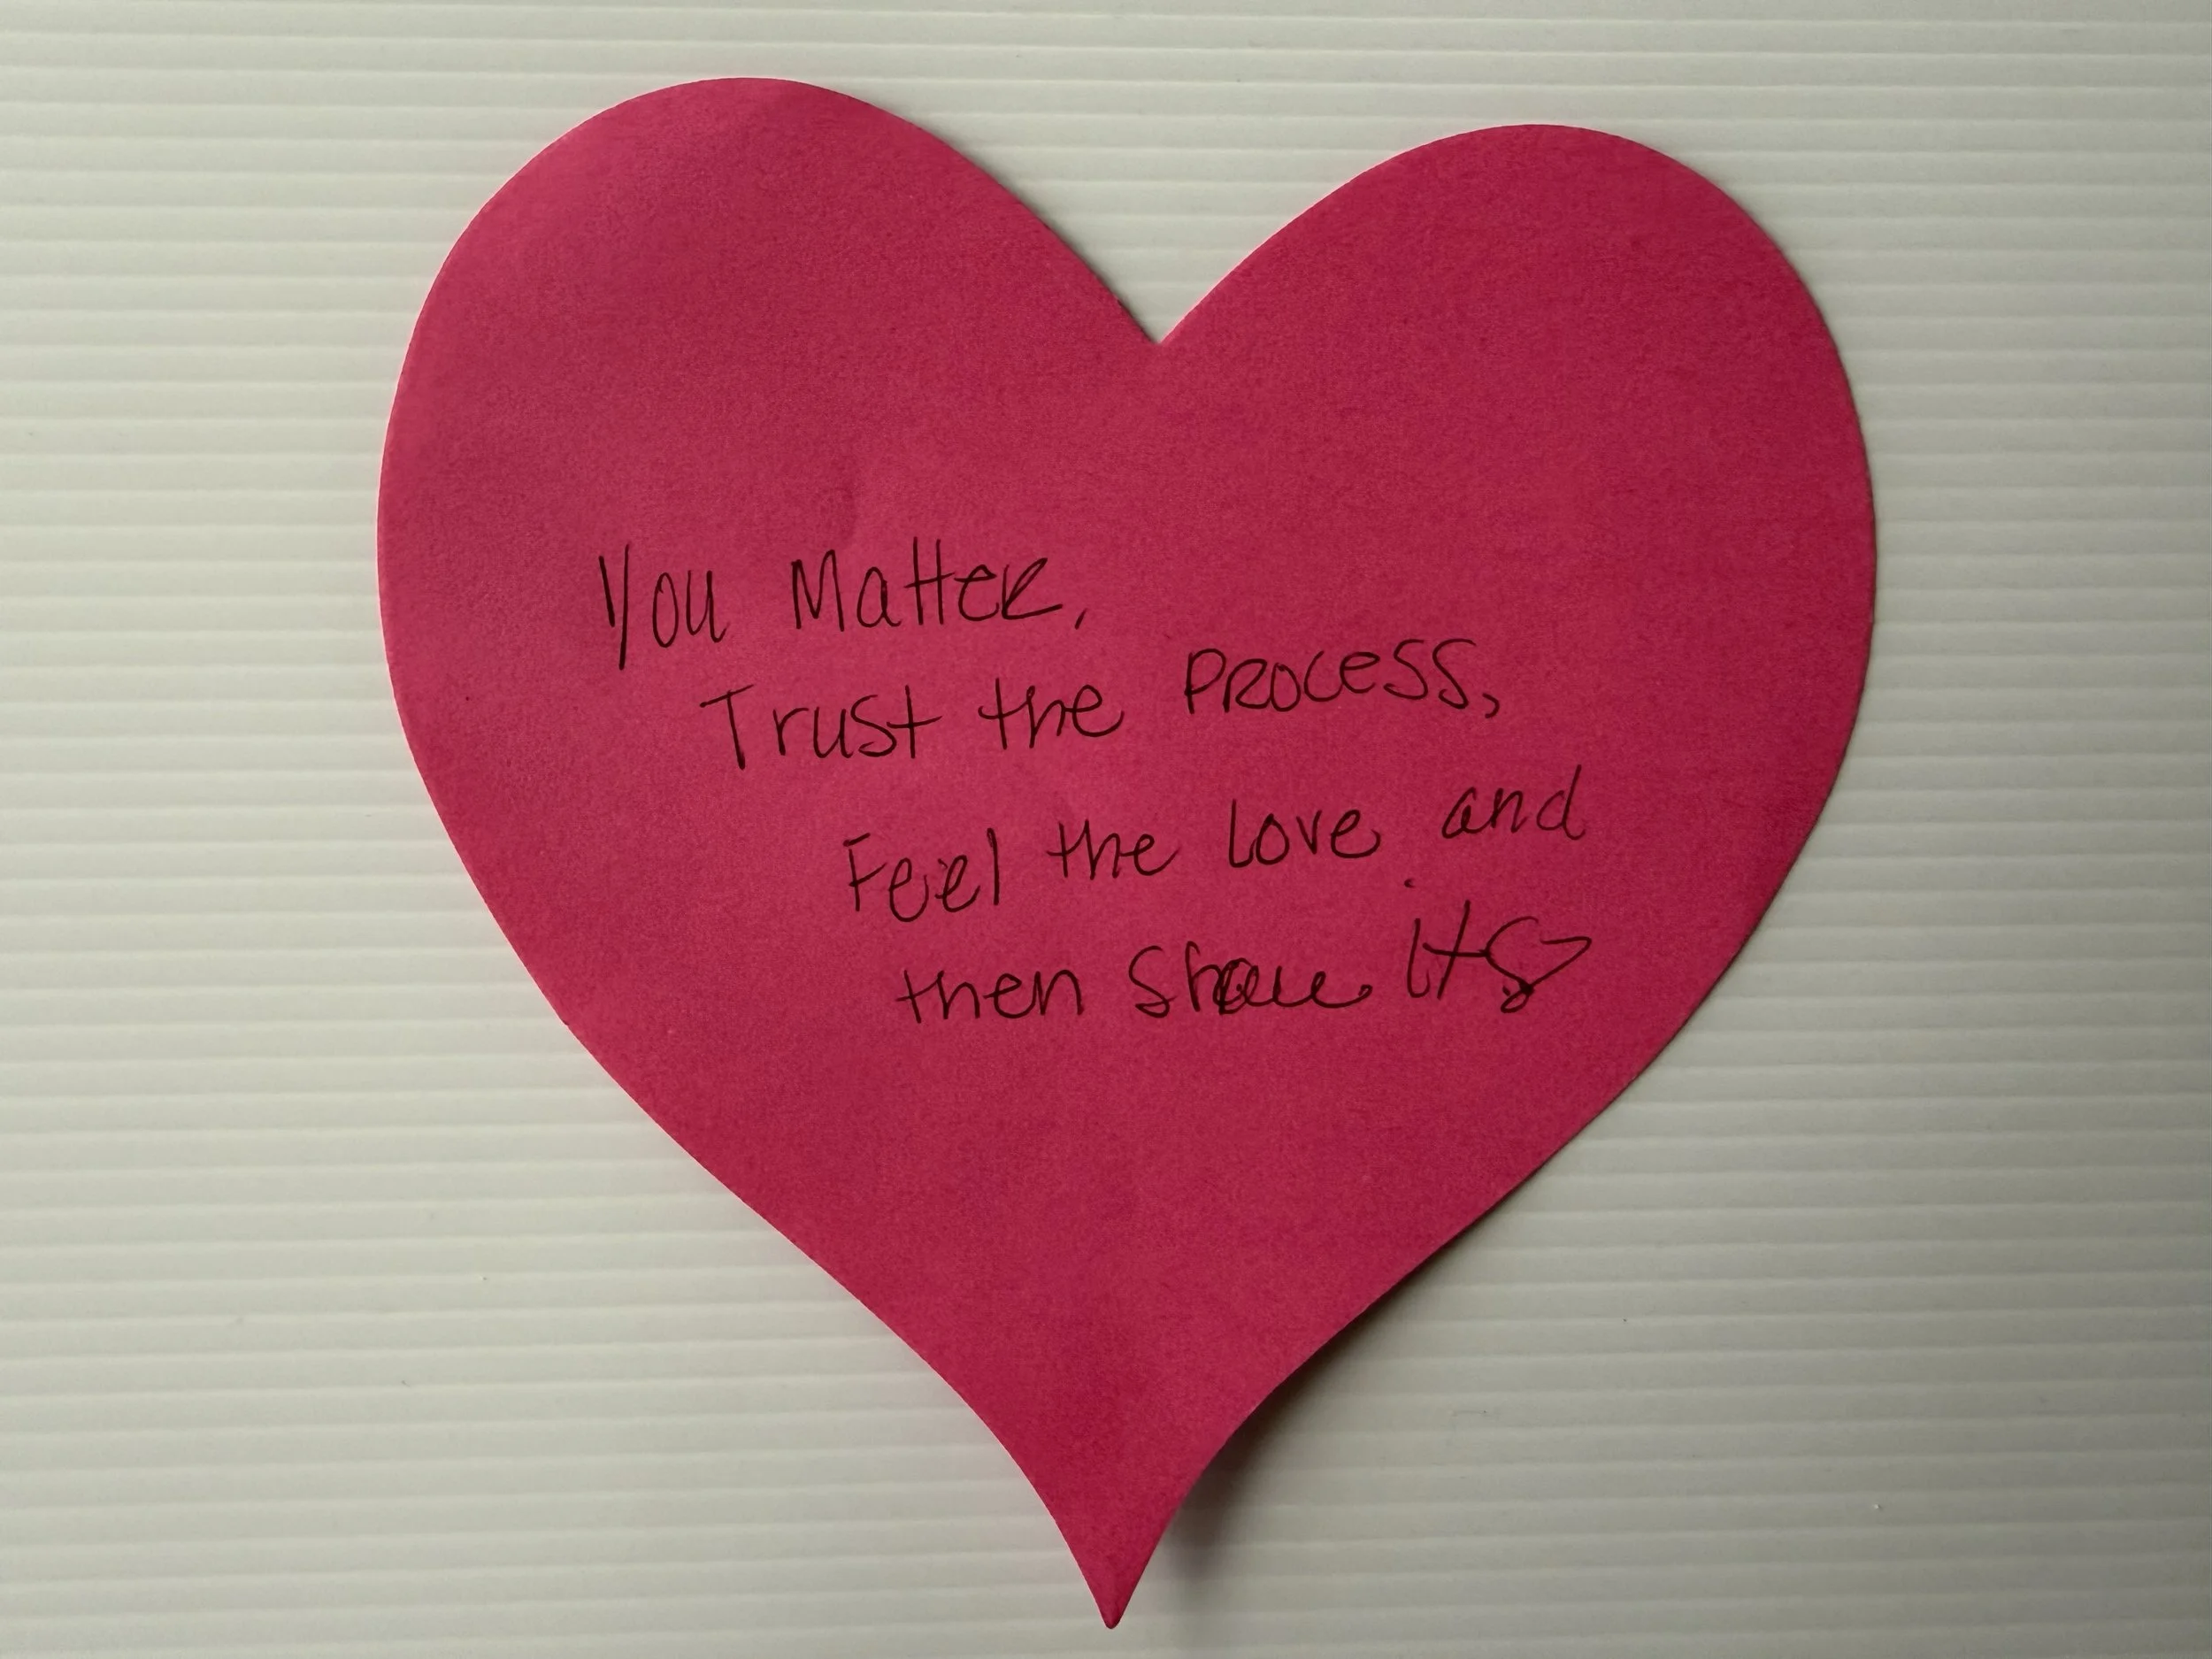 You Matter,
Trust the Process,
Feel the love and
then share it